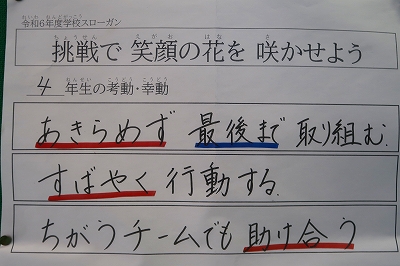 令和6年度学校スローガン
挑戦で 笑顔の花を 咲かせよう
4年生の考動・幸動
あきらめず 最後まで 取り組む.
すばやく 行動する.
ちがうチームでも 助け合う